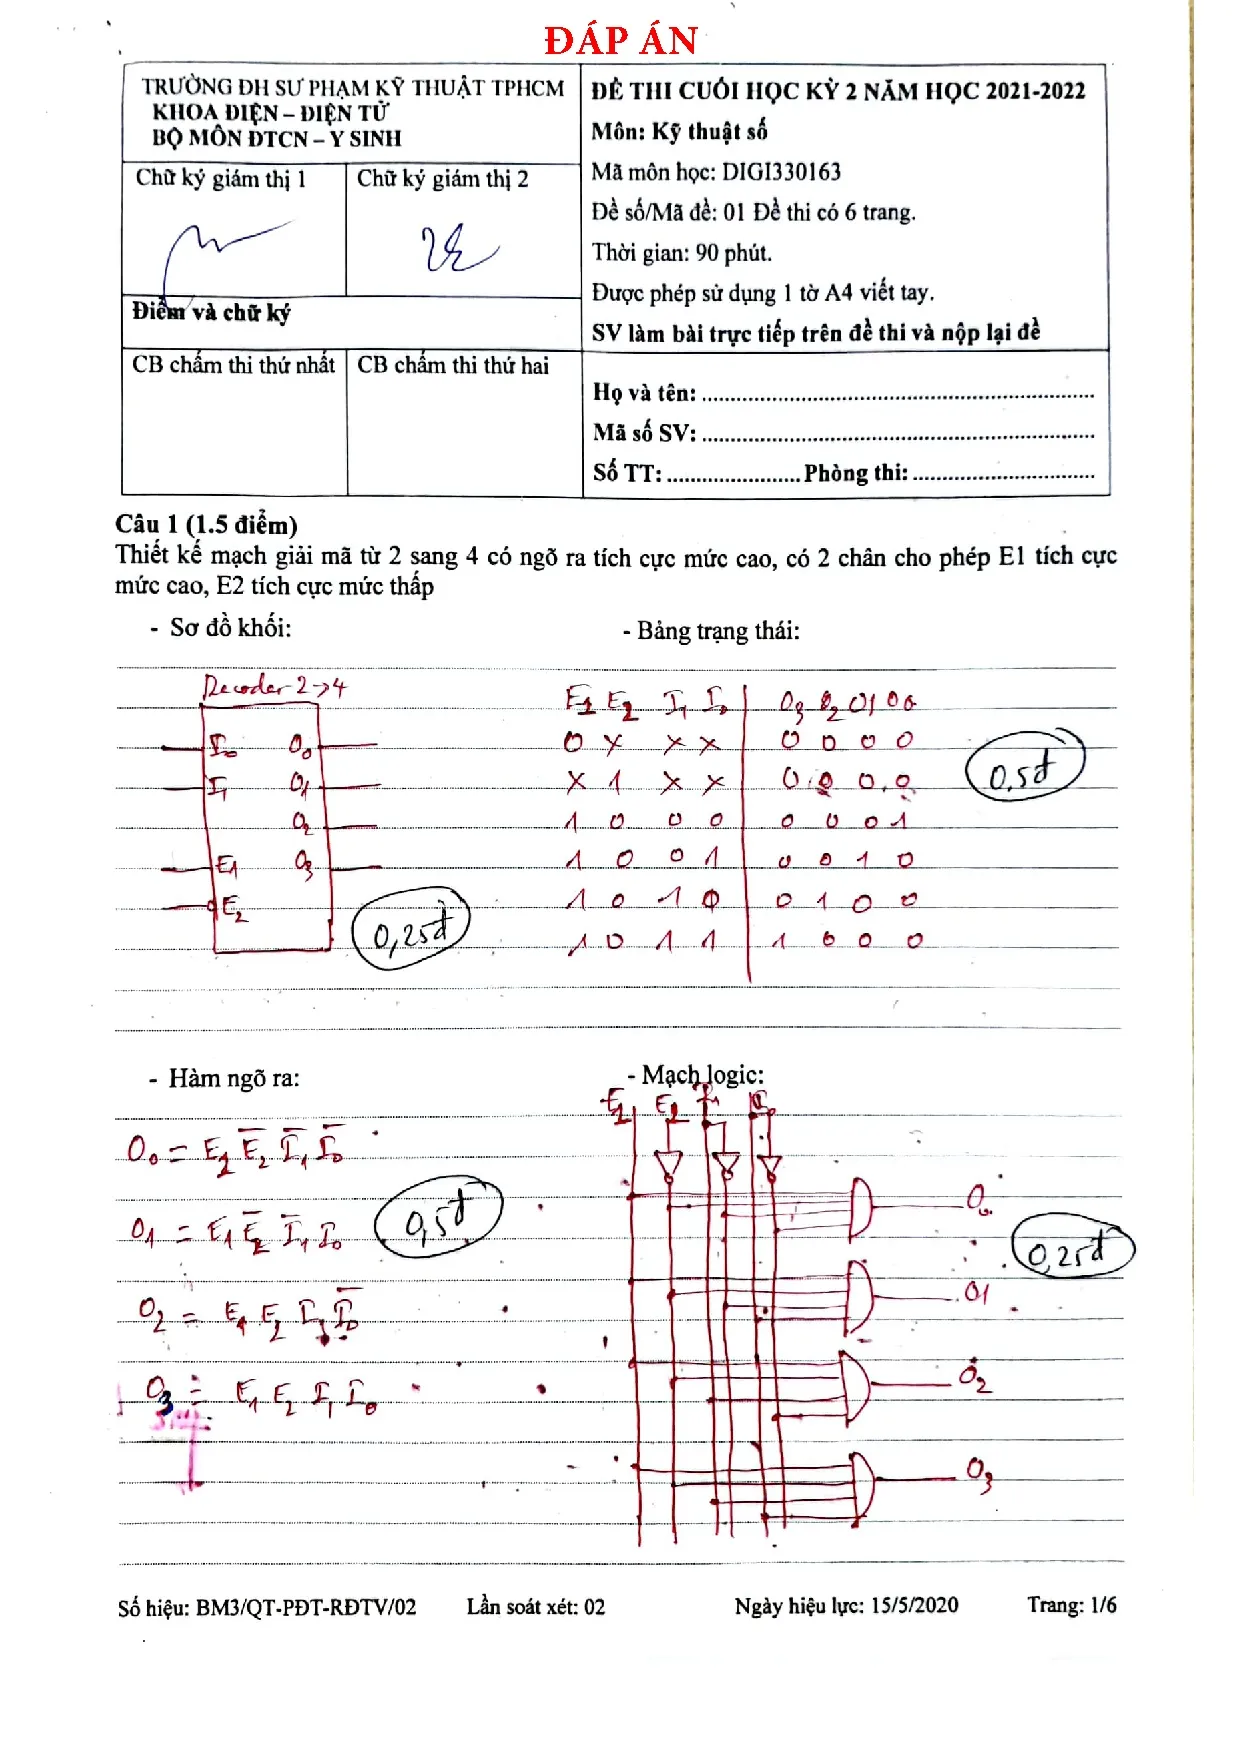 ĐÁP ÁN
TRƯỜNG ĐH SƯ PHẠM KỸ THUẬT TPHCM
KHOA ĐIỆN – ĐIỆN TỬ
BỘ MÔN ĐTCN – Y SINH
Chữ ký giám thị 1
Chữ ký giám thị 2
Điểm và chữ ký
CB chấm thi thứ nhất
CB chấm thi thứ hai
ĐỀ THI CUỐI HỌC KỲ 2 NĂM HỌC 2021-2022
Môn: Kỹ thuật số
Mã môn học: DIGI330163
Đề số/Mã đề: 01 Đề thi có 6 trang.
Thời gian: 90 phút.
Được phép sử dụng 1 tờ A4 viết tay.
SV làm bài trực tiếp trên đề thi và nộp lại đề
Họ và tên:
Mã số SV:
Số TT: Phòng thi:
Câu 1 (1.5 điểm)
Thiết kế mạch giải mã từ 2 sang 4 có ngõ ra tích cực mức cao, có 2 chân cho phép E1 tích cực
mức cao, E2 tích cực mức thấp
- Sơ đồ khối:
Decoder 2→4
I0 O0
I1 O1
O2
E1 O3
E2
0,25đ
- Bảng trạng thái:
E1 E2 I1 I0 O3 O2 O1 O0
0 x x x 0 0 0 0
x 1 x x 0 0 0 0
1 0 0 0 0 0 0 1
1 0 0 1 0 0 1 0
1 0 1 0 0 1 0 0
1 0 1 1 1 0 0 0
0,5đ
- Hàm ngõ ra:
O0 = E1 E̅2 I̅1 I̅0
O1 = E1 E̅2 I̅1 I0
O2 = E1 E2 I1 I̅0
O3 = E1 E2 I1 I0
0,5đ
- Mạch logic:
E1 E2 I1 I0
O0
O1
O2
O3
0,25đ
Số hiệu: BM3/QT-PĐT-RĐTV/02 Lần soát xét: 02 Ngày hiệu lực: 15/5/2020 Trang: 1/6